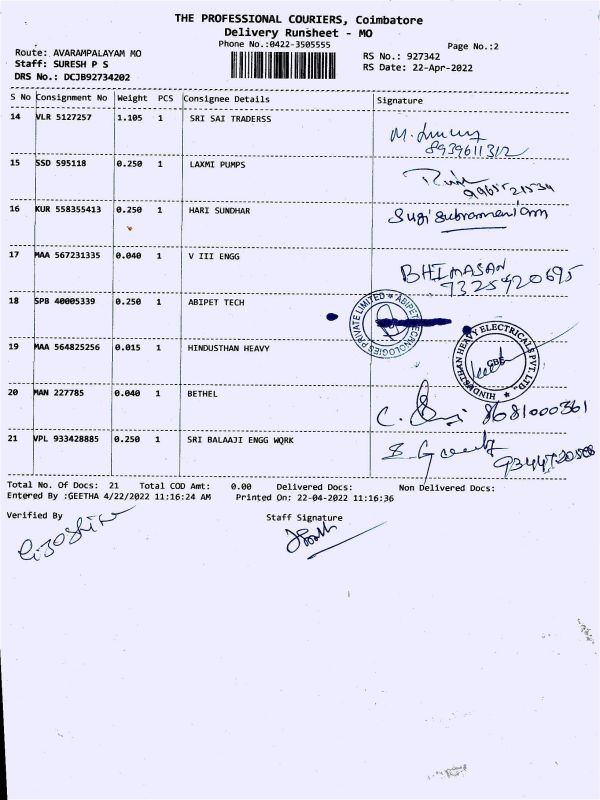 THE PROFESSIONAL COURIERS, Coimbatore
Delivery Runsheet - MO
Phone No.:0422-3505555
Page No.:2
Route: AVARAMPALAYAM MO
RS No.: 927342
Staff: SURESH P S
RS Date: 22-Apr-2022
DRS No.: DCJB92734202
S No Consignment No Weight PCS Consignee Details Signature
14 VLR 5127257 1.105 1 SRI SAI TRADERSS
8939611312
15 SSD 595118 0.250 1 LAXMI PUMPS
16 KUR 558355413 0.250 1 HARI SUNDHAR
17 MAA 567231335 0.040 1 V III ENGG
BHIMASAN
7325420695
18 SPB 40005339 0.250 1 ABIPET TECH
ABIPET TECHNOLOGIES PRIVATE LIMITED
19 MAA 564825256 0.015 1 HINDUSTHAN HEAVY
HINDUSTHAN HEAVY ELECTRICALS PVT. LTD.
CBE
20 MAN 227785 0.040 1 BETHEL
8681000361
21 VPL 933428885 0.250 1 SRI BALAAJI ENGG WORK
Total No. Of Docs: 21 Total COD Amt: 0.00 Delivered Docs: Non Delivered Docs:
Entered By :GEETHA 4/22/2022 11:16:24 AM Printed On: 22-04-2022 11:16:36
Verified By Staff Signature